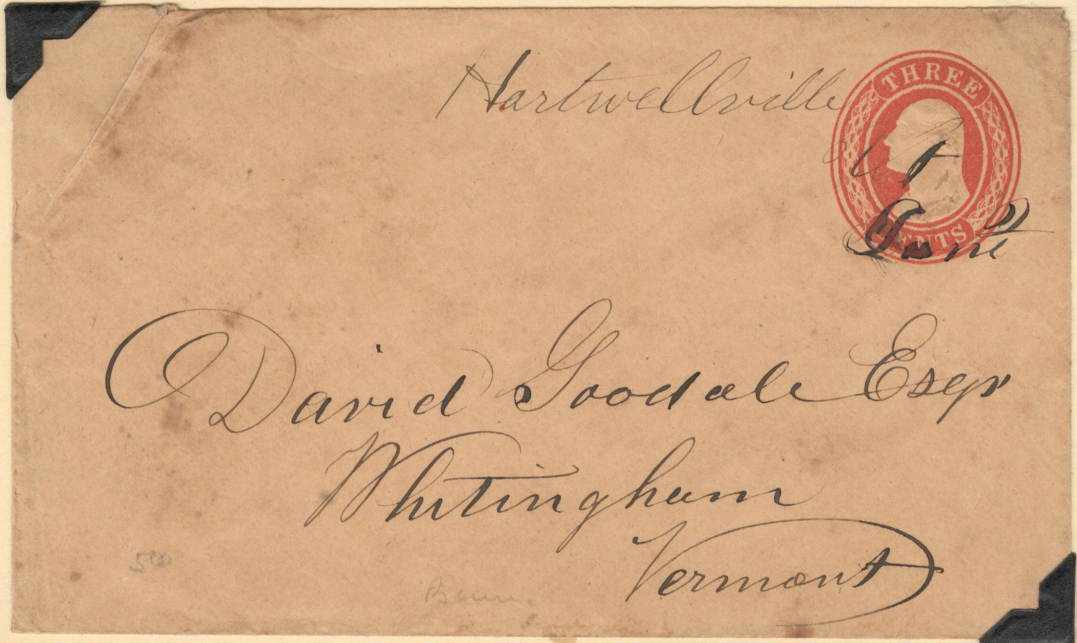 Hartwellville
Vt
THREE
CENTS
June
David Goodale Esqr
Whitingham
Vermont